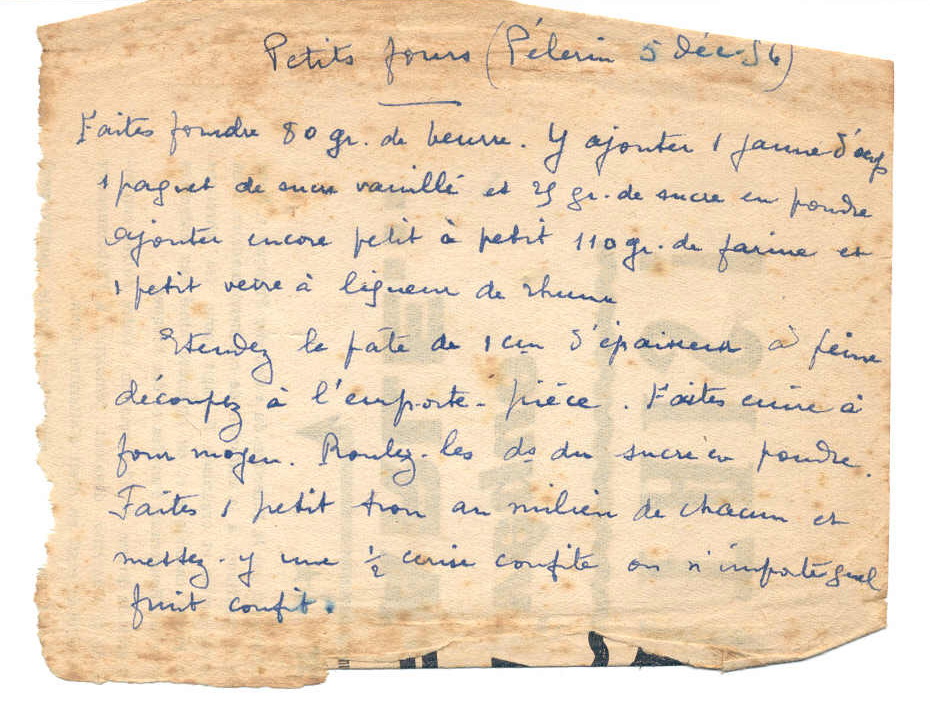 Petits fours (Pélerin 5 Déc. 56)
Faites fondre 80 gr. de beurre. Y ajouter 1 jaune d'œuf
1 paquet de sucre vanillé et 25 gr. de sucre en poudre
Ajouter encore petit à petit 110 gr. de farine et
1 petit verre à liqueur de rhum
Etendez la pate de 1 cm d'épaisseur à peine
découpez à l'emporte-pièce. Faites cuire à
four moyen. Roulez-les ds du sucre en poudre.
Faites 1 petit trou au milieu de chacun et
mettez-y une ½ cerise confite ou n'importe quel
fruit confit.